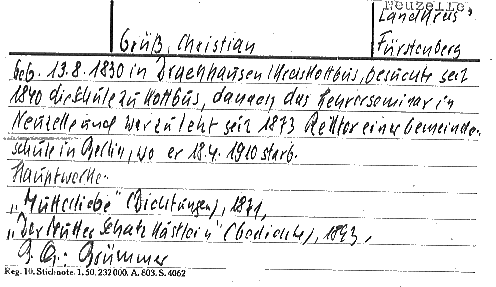 Neuzelle,
Landkreis
Grüß, Christian
Fürstenberg
Geb. 13.8.1830 in Drachhausen Kreis Kottbus, besuchte seit
1840 die Schule zu Kottbus, danach das Lehrerseminar in
Neuzelle und war zuletzt seit 1873 Rektor einer Gemeinde-
schule in Berlin, wo er 18.4.1910 starb.
Hauptwerke:
„Mutterliebe" (Dichtungen), 1871,
„Der Mutter Schatzkästlein" (Gedichte), 1893,
Brümmer
Reg. 10. Stichnote. 1. 50. 232 000. A. 603. S. 4062